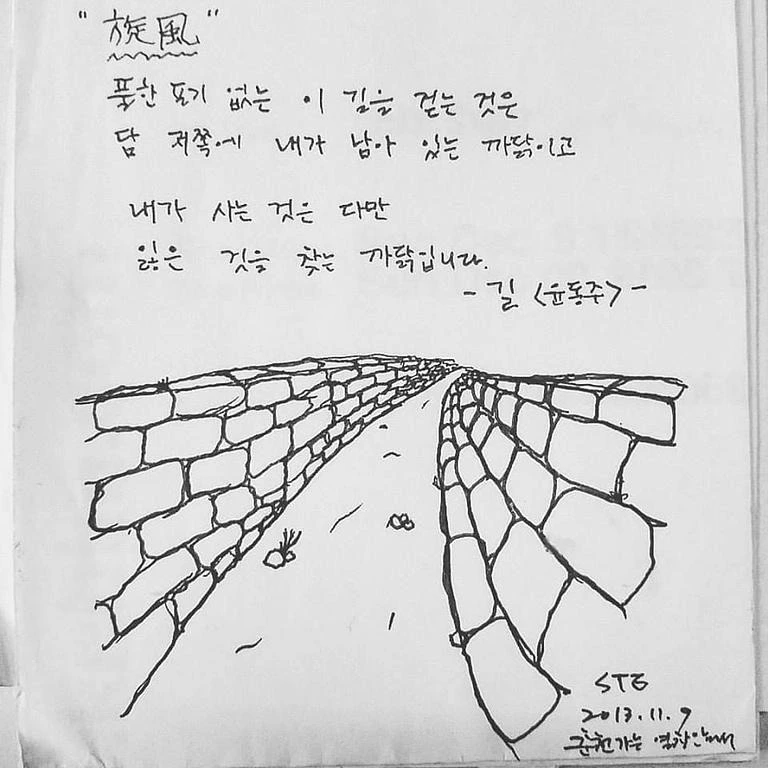 "旋風"
풀한 포기 없는 이 길을 걷는 것은
담 저쪽에 내가 남아 있는 까닭이고
내가 사는 것은 다만
잃은 것을 찾는 까닭입니다.
- 길 <윤동주> -
STG
2013.11.9
춘천가는 열차안에서